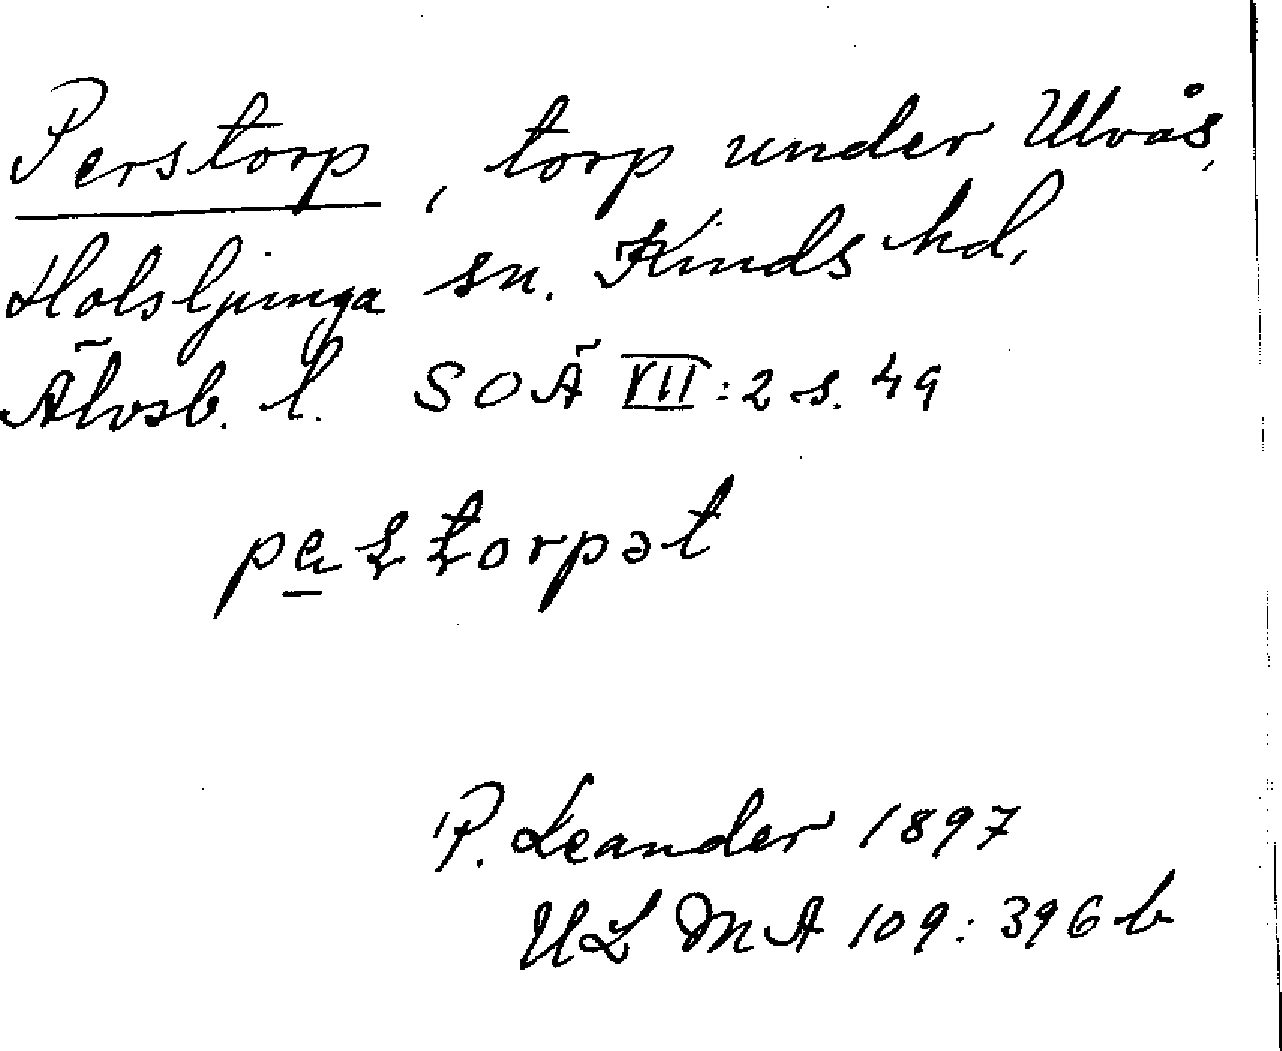 Perstorp, torp under Ulvås,
Holsljunga sn. Kinds hd,
Älvsb. l. SOÄ VII:2 s. 49
torpət
P. Leander 1897
ULMA 109:396 b